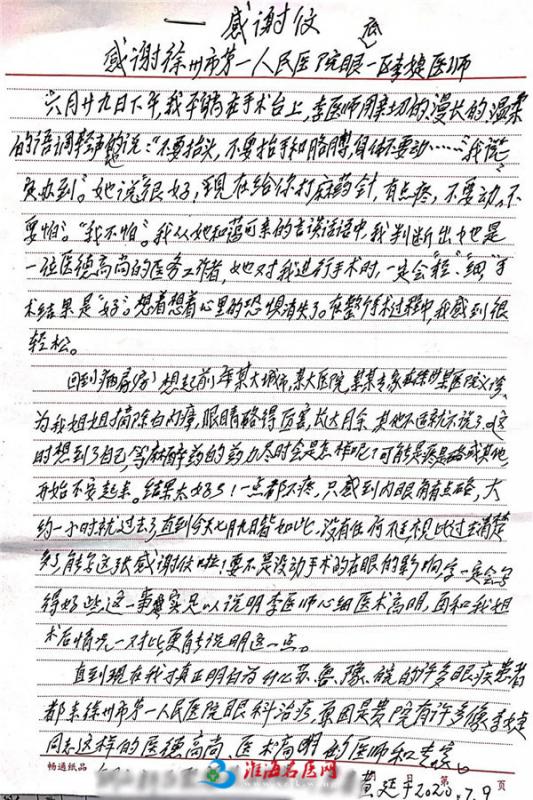 一感谢仪
感谢徐州市第一人民医院眼一区李捷医师
六月廿九日下午，我平躺在手术台上，李医师用亲切的、漫长的温柔
的语调轻声的说：“不要抬头，不要抬手和胳膊，身体不要动……”“我能
办到”。她说“很好，现在给你打麻药针，有点疼，不要动。不
要怕”。“我不怕”。我从她和蔼可亲的言谈话语中，我判断出她是
一位医德高尚的医务工作者，她对我进行手术时，一定会“轻”、“细”手
术结果是“好”。想着想着心里的恐惧消失了。在整个手术过程中，我感到很
轻松。
回到病房后，想起前年某大城市，某大医院，某某专家在徐州某医院义诊，
为我姐姐摘除白内障，眼睛硌得厉害，长达月余，其他不适就不说了。这
时想到了自己，等麻醉药的药力尽时会是怎样呢？可能是疼是硌或其他，
开始不安起来。结果太好了！一点都不疼，只感到内眼角有点硌，大
约一小时就过去了，直到今天七月九日皆如此，没有任何不适，视比过去清楚
多了，能写这张感谢仪啦！要不是没动手术的右眼的影响，字一定会写
得好些，这一事实足以说明李医师心细医术高明，再和我姐
术后情况一对比更能说明这一点。
直到现在我才真正明白为什么苏、鲁、豫、皖的许多眼疾患者
都来徐州市第一人民医院眼科治疗，原因是贵院有许多像李捷
同志这样的医德高尚、医术高明的医师和专家。
黄廷于2020.7.9
畅通纸品
第 页
淮海名医网